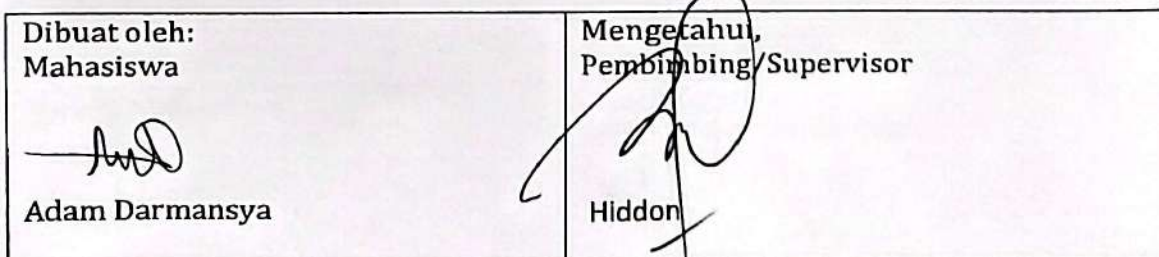 Dibuat oleh:
Mahasiswa
Adam Darmansya
Mengetahui,
Pembimbing/Supervisor
Hiddon